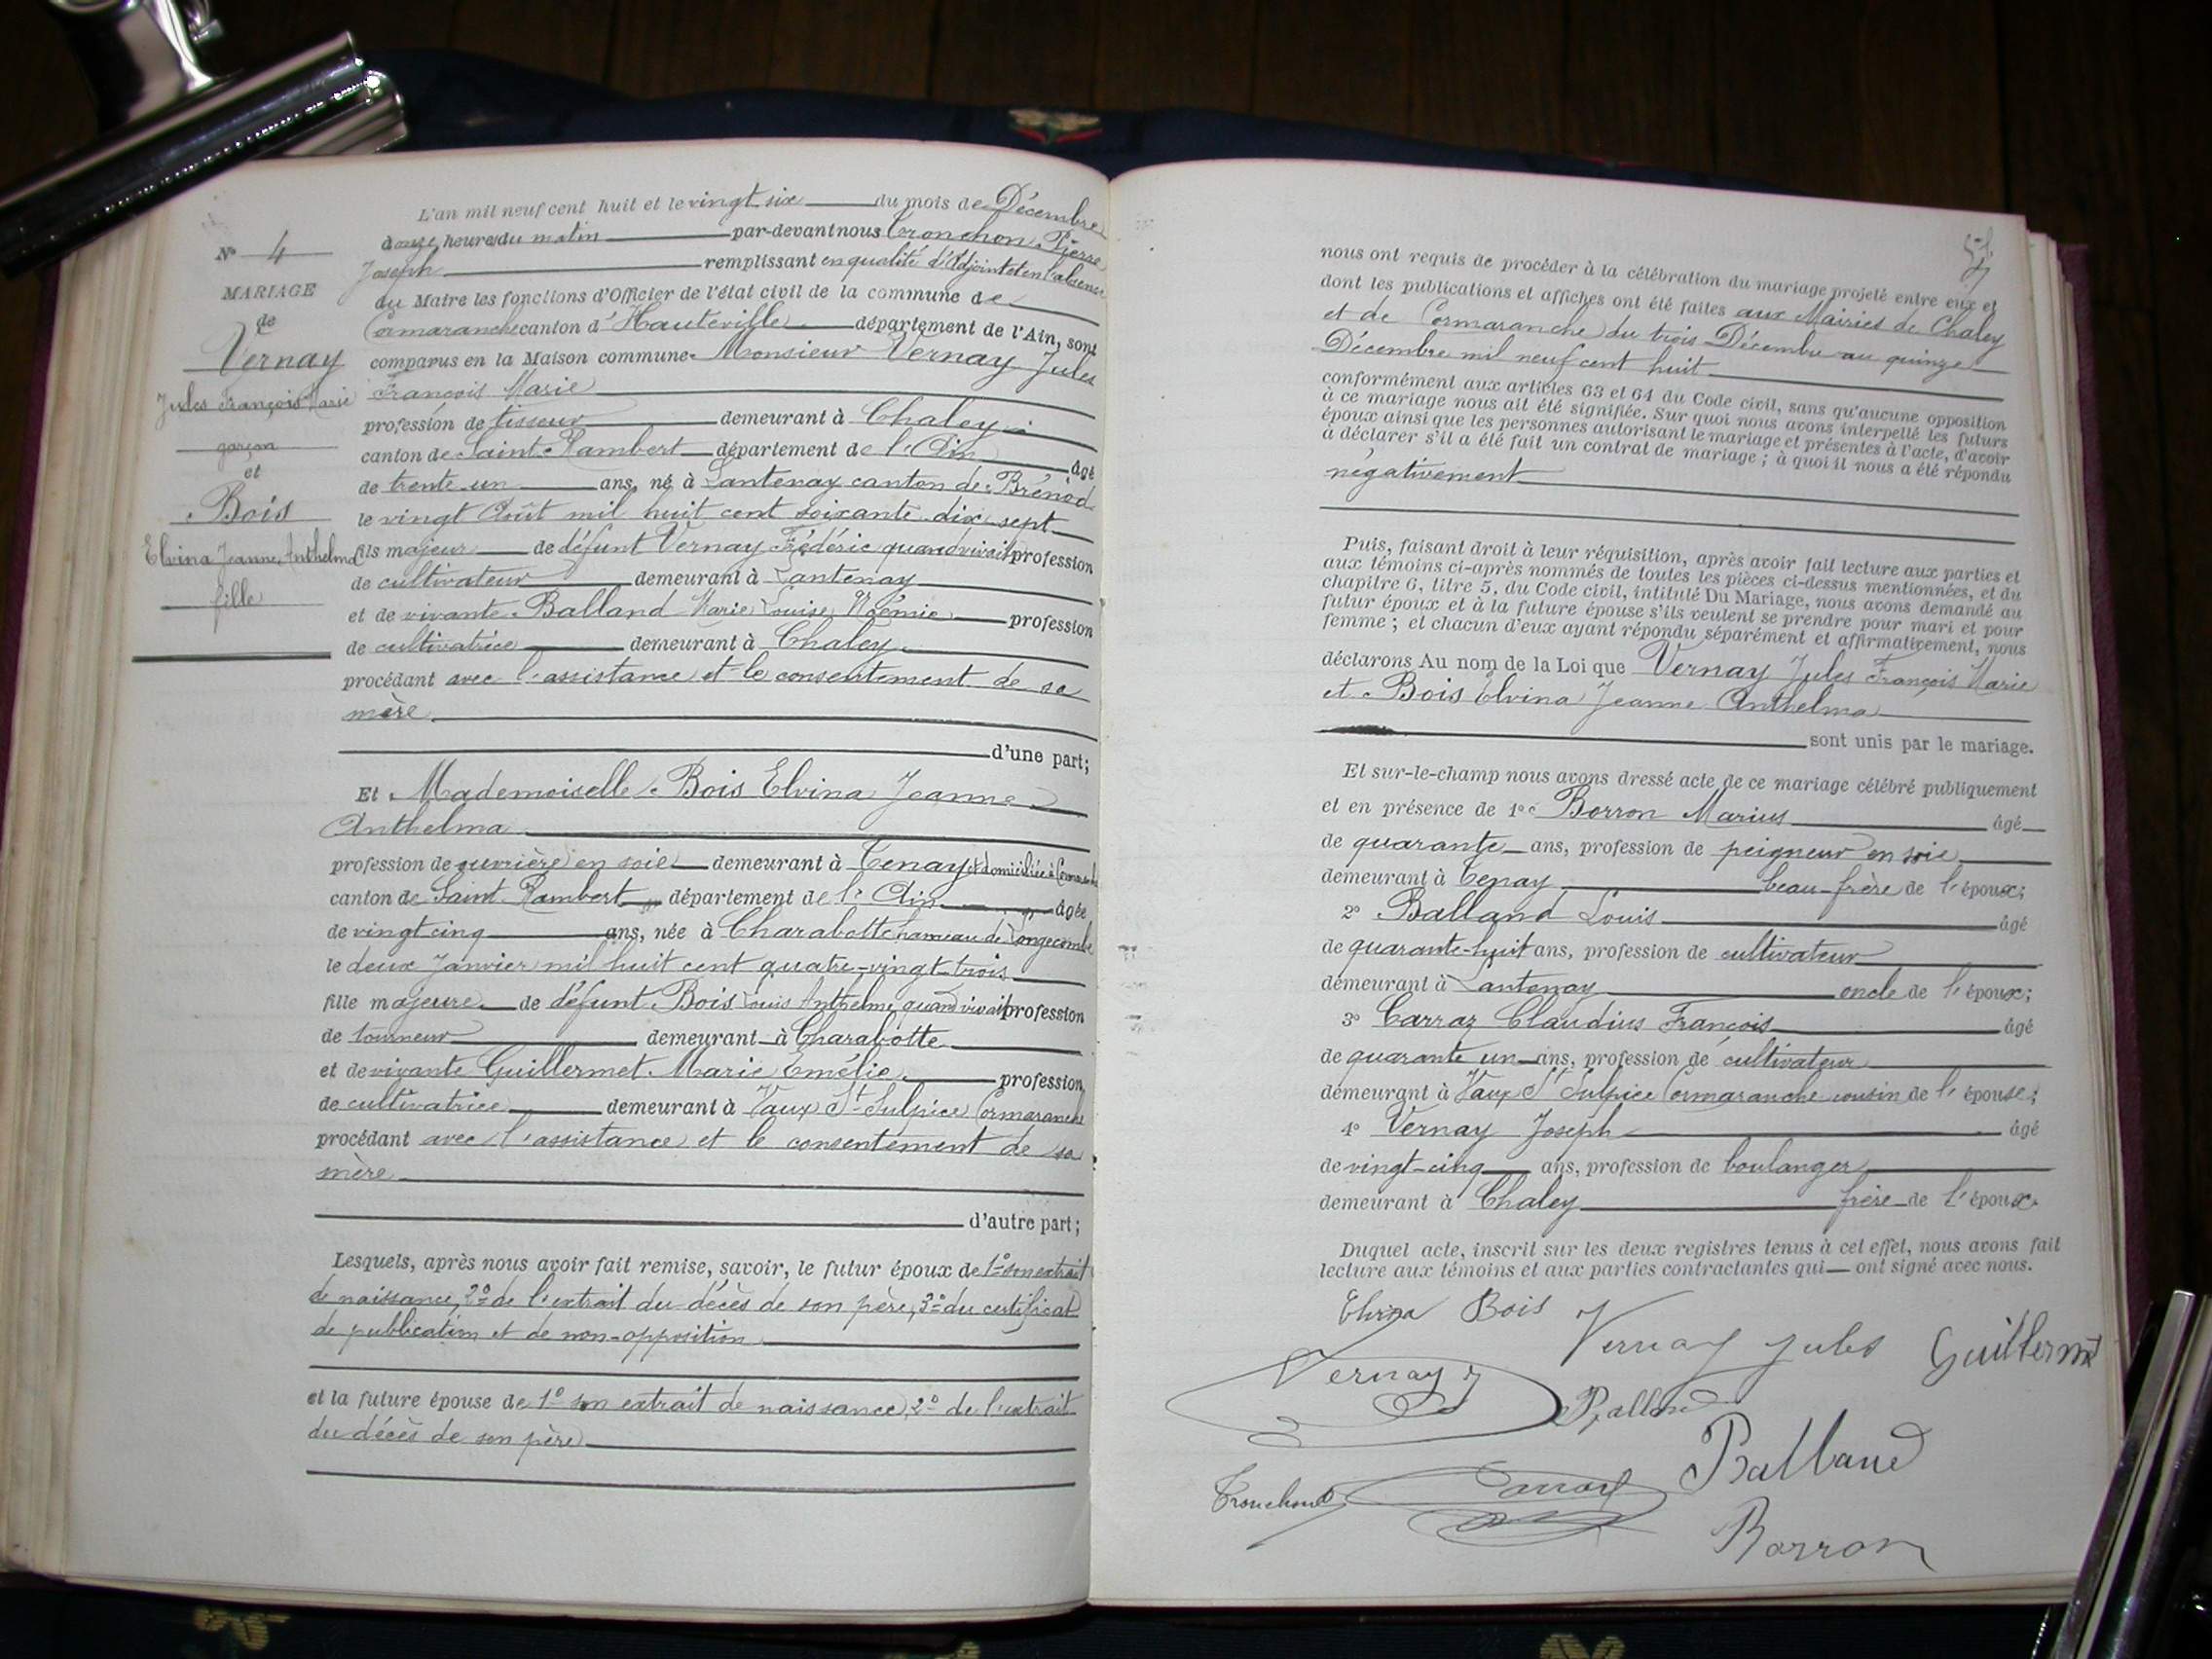 N° 4
MARIAGE
de
Vernay
Jules François Marie
garçon
et
Bois
Elvina Jeanne Anthelma
fille
L'an mil neuf cent huit et le vingt six du mois de Décembre
à onze heures du matin par-devant nous Tronchon Pierre
Joseph remplissant en qualité d'Adjoint et en l'absence
du Maire les fonctions d'Officier de l'état civil de la commune de
Cormaranche canton d'Hauteville département de l'Ain, sont
comparus en la Maison commune Monsieur Vernay Jules
François Marie
profession de tisseur demeurant à Chaley
canton de Saint-Rambert département de l'Ain âgé
de trente un ans, né à Lantenay canton de Brénod
le vingt Août mil huit cent soixante dix sept
fils majeur de défunt Vernay Frédéric quand vivait profession
de cultivateur demeurant à Lantenay
et de vivante Balland Marie Louise Noémie profession
de cultivatrice demeurant à Chaley
procédant avec l'assistance et le consentement de sa
mère
d'une part;
Et Mademoiselle Bois Elvina Jeanne
Anthelma
profession de ouvrière en soie demeurant à Tenay et domiciliée à Cormaranche
canton de Saint Rambert département de l'Ain âgée
de vingt cinq ans, née à Charabotte hameau de Longecombe
le deux Janvier mil huit cent quatre-vingt-trois
fille majeure de défunt Bois Louis Anthelme quand vivait profession
de tourneur demeurant à Charabotte
et de vivante Guillermet Marie Emélie profession
de cultivatrice demeurant à Vaux St Sulpice Cormaranche
procédant avec l'assistance et le consentement de sa
mère
d'autre part;
Lesquels, après nous avoir fait remise, savoir, le futur époux de 1° son extrait
de naissance, 2° de l'extrait du décès de son père, 3° du certificat
de publication et de non-opposition
et la future épouse de 1° son extrait de naissance, 2° de l'extrait
du décès de son père
nous ont requis de procéder à la célébration du mariage projeté entre eux et
dont les publications et affiches ont été faites aux Mairies de Chaley
et de Cormaranche du trois Décembre au quinze
Décembre mil neuf cent huit
conformément aux articles 63 et 64 du Code civil, sans qu'aucune opposition
à ce mariage nous ait été signifiée. Sur quoi nous avons interpellé les futurs
époux ainsi que les personnes autorisant le mariage et présentes à l'acte, d'avoir
à déclarer s'il a été fait un contrat de mariage ; à quoi il nous a été répondu
négativement
Puis, faisant droit à leur réquisition, après avoir fait lecture aux parties et
aux témoins ci-après nommés de toutes les pièces ci-dessus mentionnées, et du
chapitre 6, titre 5, du Code civil, intitulé Du Mariage, nous avons demandé au
futur époux et à la future épouse s'ils veulent se prendre pour mari et pour
femme ; et chacun d'eux ayant répondu séparément et affirmativement, nous
déclarons Au nom de la Loi que Vernay Jules François Marie
et Bois Elvina Jeanne Anthelma
sont unis par le mariage.
Et sur-le-champ nous avons dressé acte de ce mariage célébré publiquement
et en présence de 1° Borron Marius âgé
de quarante ans, profession de peigneur en soie
demeurant à Tenay beau-frère de l'époux;
2° Balland Louis âgé
de quarante-huit ans, profession de cultivateur
demeurant à Lantenay oncle de l'époux;
3° Carraz Claudius François âgé
de quarante un ans, profession de cultivateur
demeurant à Vaux St Sulpice Cormaranche cousin de l'épouse;
4° Vernay Joseph âgé
de vingt-cinq ans, profession de boulanger
demeurant à Chaley frère de l'époux
Duquel acte, inscrit sur les deux registres tenus à cet effet, nous avons fait
lecture aux témoins et aux parties contractantes qui ont signé avec nous.
Elvina Bois Vernay Jules Guillermet
Vernay J Balland
Balland
Tronchon Carraz
Borron